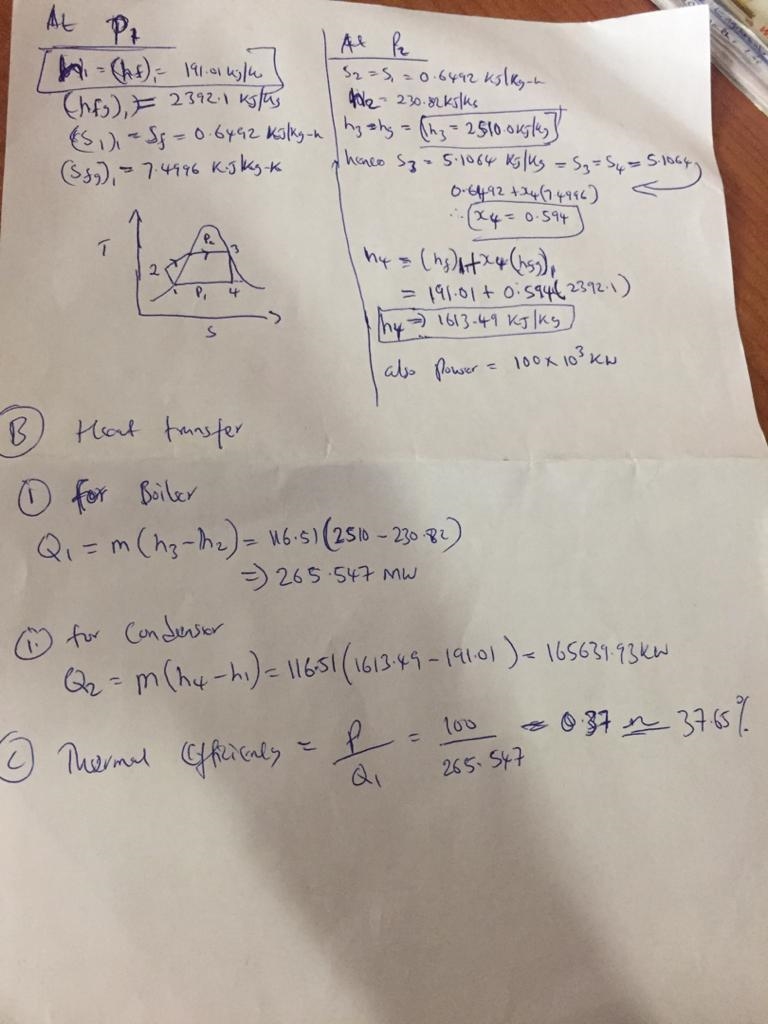 At P1
h1 = (hf)1 = 191.01 KJ/K
(hfg)1 = 2392.1 KJ/Kg
(S1)1 = Sf = 0.6492 KJ/Kg-K
(Sfg)1 = 7.4996 KJ/Kg-K
T
P2
2
3
1
P1
4
S
At P2
S2 = S1 = 0.6492 KJ/Kg-K
h2 = 230.82 KJ/Kg
h3 = hg = (h3 = 2510.0 KJ/Kg)
hence S3 = 5.1064 KJ/Kg = S3 = S4 = 5.1064
0.6492 + x4(7.4996)
∴ x4 = 0.594
h4 = (hf)1 + x4(hfg)1
= 191.01 + 0.594(2392.1)
h4 => 1613.49 KJ/Kg
also Power = 100 x 10³ KW
B Heat transfer
① for Boiler
Q1 = m(h3-h2) = 116.51(2510 - 230.82)
=> 265.547 MW
for Condensor
Q2 = m(h4-h1) = 116.51(1613.49 - 191.01) = 165639.93KW
C Thermal Efficiency = P/Q1 = 100/265.547 = 0.37 ≈ 37.65%